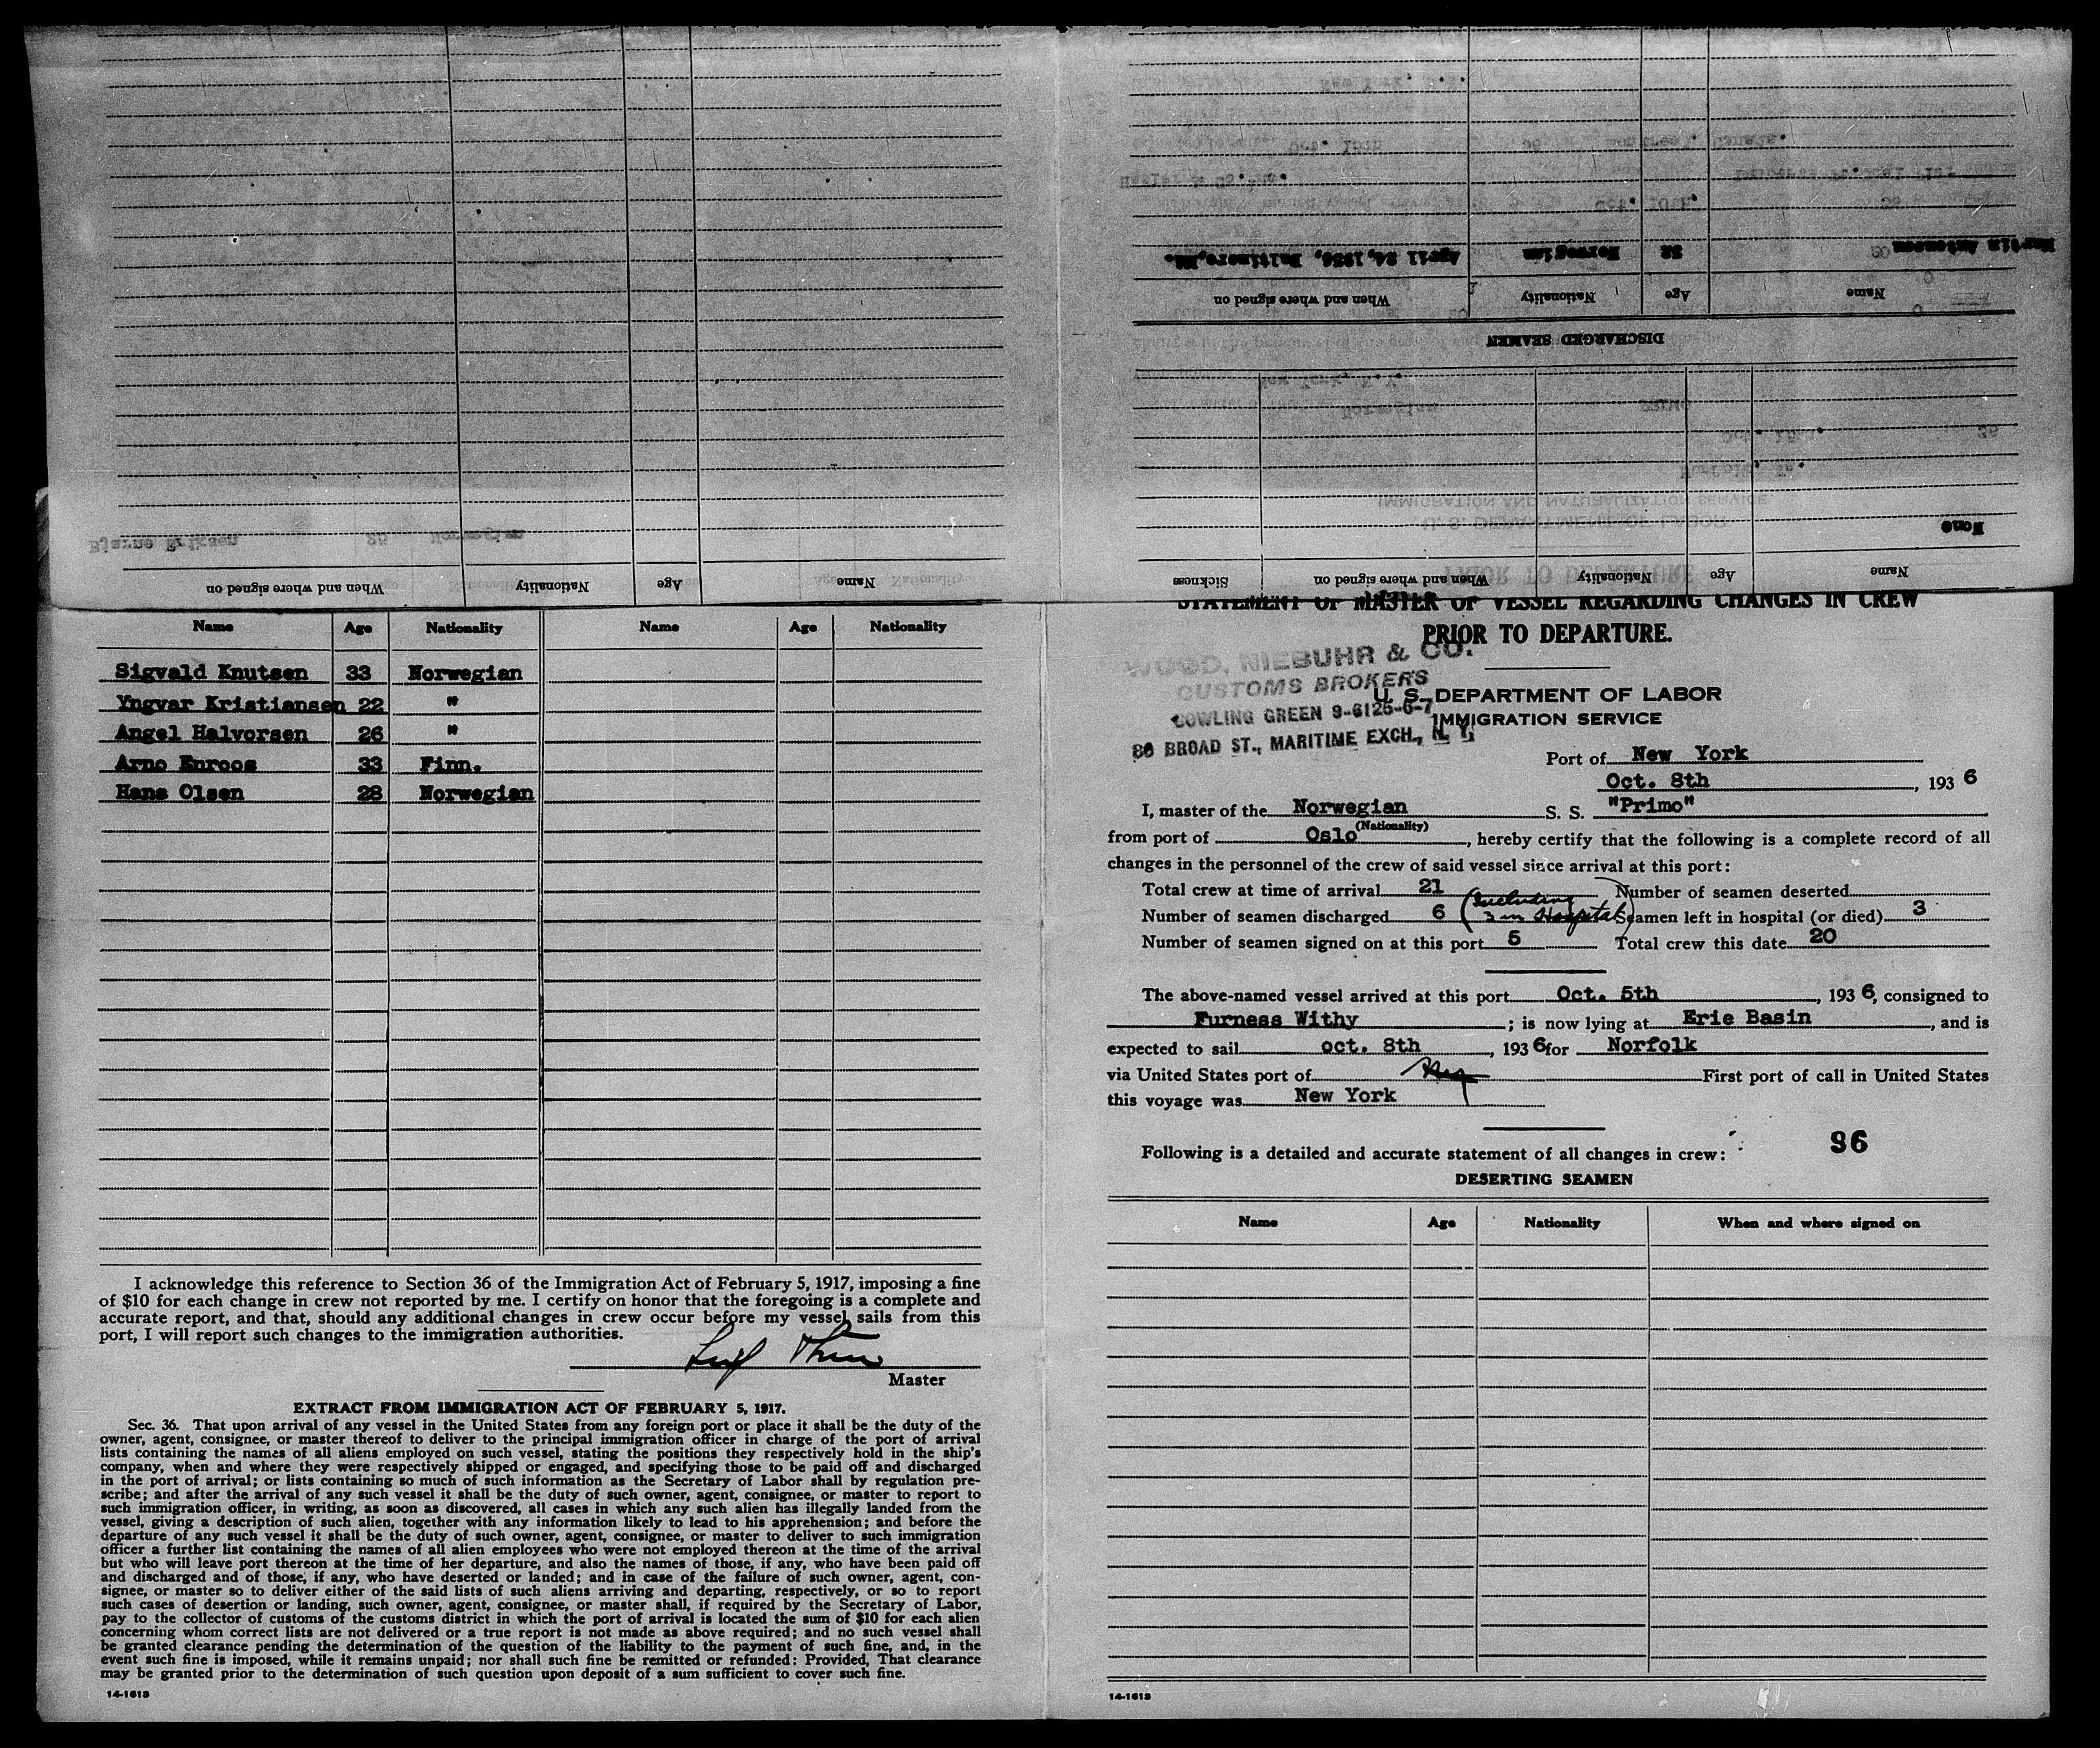 When and where signed on Nationality Age Name
Name Age Nationality When and where signed on Sickness
None
DISCHARGED SEAMEN
Name Age Nationality When and where signed on
Martin Antonsen 32 Norwegian April 24, 1936, Baltimore, Md.
Bjarne Eriksen 25 Norwegian
Name Age Nationality Name Age Nationality
Sigvald Knutsen 33 Norwegian
Yngvar Kristiansen 22 "
Angel Halvorsen 26 "
Arno Enroos 33 Finn.
Hans Olsen 28 Norwegian
I acknowledge this reference to Section 36 of the Immigration Act of February 5, 1917, imposing a fine
of $10 for each change in crew not reported by me. I certify on honor that the foregoing is a complete and
accurate report, and that, should any additional changes in crew occur before my vessel sails from this
port, I will report such changes to the immigration authorities.
Master
EXTRACT FROM IMMIGRATION ACT OF FEBRUARY 5, 1917.
Sec. 36. That upon arrival of any vessel in the United States from any foreign port or place it shall be the duty of the
owner, agent, consignee, or master thereof to deliver to the principal immigration officer in charge of the port of arrival
lists containing the names of all aliens employed on such vessel, stating the positions they respectively hold in the ship's
company, when and where they were respectively shipped or engaged, and specifying those to be paid off and discharged
in the port of arrival; or lists containing so much of such information as the Secretary of Labor shall by regulation pre-
scribe; and after the arrival of any such vessel it shall be the duty of such owner, agent, consignee, or master to report to
such immigration officer, in writing, as soon as discovered, all cases in which any such alien has illegally landed from the
vessel, giving a description of such alien, together with any information likely to lead to his apprehension; and before the
departure of any such vessel it shall be the duty of such owner, agent, consignee, or master to deliver to such immigration
officer a further list containing the names of all alien employees who were not employed thereon at the time of the arrival
but who will leave port thereon at the time of her departure, and also the names of those, if any, who have been paid off
and discharged and of those, if any, who have deserted or landed; and in case of the failure of such owner, agent, con-
signee, or master so to deliver either of the said lists of such aliens arriving and departing, respectively, or so to report
such cases of desertion or landing, such owner, agent, consignee, or master shall, if required by the Secretary of Labor,
pay to the collector of customs of the customs district in which the port of arrival is located the sum of $10 for each alien
concerning whom correct lists are not delivered or a true report is not made as above required; and no such vessel shall
be granted clearance pending the determination of the question of the liability to the payment of such fine, and, in the
event such fine is imposed, while it remains unpaid; nor shall such fine be remitted or refunded: Provided, That clearance
may be granted prior to the determination of such question upon deposit of a sum sufficient to cover such fine.
14-1613
STATEMENT OF MASTER OF VESSEL REGARDING CHANGES IN CREW
PRIOR TO DEPARTURE.
WOOD, NIEBUHR & CO.
CUSTOMS BROKERS
BOWLING GREEN 9-6125-6-7
86 BROAD ST., MARITIME EXCH., N. Y.
U. S. DEPARTMENT OF LABOR
IMMIGRATION SERVICE
Port of New York
Oct. 8th, 1936
I, master of the Norwegian S. S. "Primo"
(Nationality)
from port of Oslo, hereby certify that the following is a complete record of all
changes in the personnel of the crew of said vessel since arrival at this port:
Total crew at time of arrival 21 Number of seamen deserted
Number of seamen discharged 6 (including 3 in Hospital) Seamen left in hospital (or died) 3
Number of seamen signed on at this port 5 Total crew this date 20
The above-named vessel arrived at this port Oct. 5th, 1936, consigned to
Furness Withy; is now lying at Erie Basin, and is
expected to sail oct. 8th, 1936 for Norfolk
via United States port of First port of call in United States
this voyage was New York
96
Following is a detailed and accurate statement of all changes in crew:
DESERTING SEAMEN
Name Age Nationality When and where signed on
14-1613